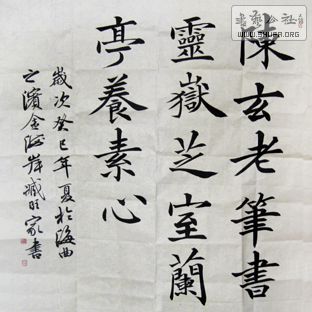 陳玄老筆書
靈嶽芝室蘭
亭養素心
歲次癸巳年夏於海曲
之濱金海岸臧旺家書
書藝公社
www.shufa.org